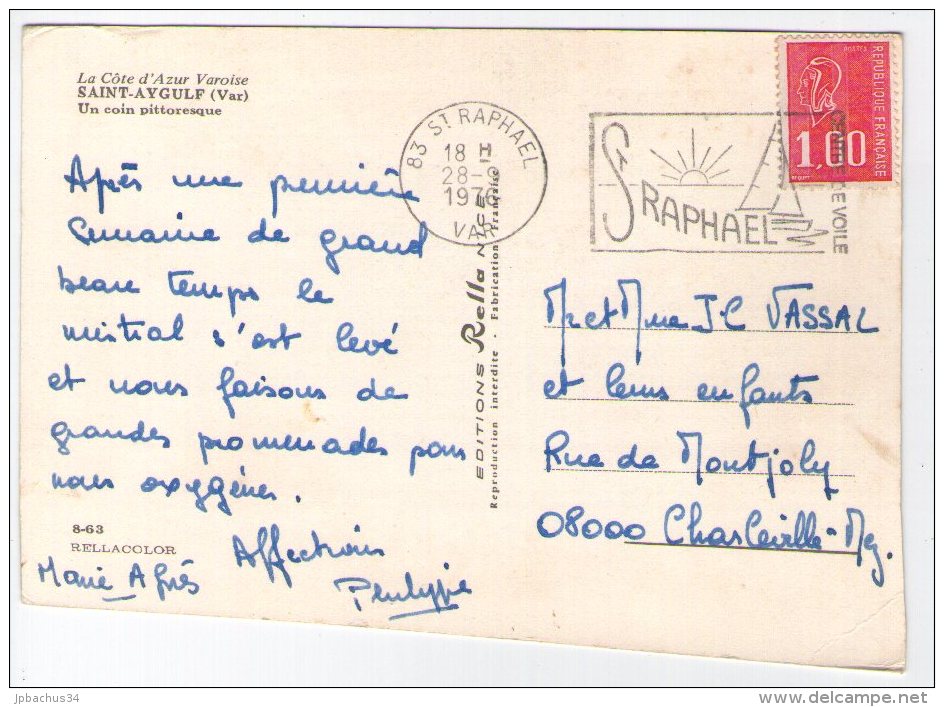 La Côte d'Azur Varoise
SAINT-AYGULF (Var)
Un coin pittoresque
Après une première
semaine de grand
beau temps le
mistral s'est levé
et nous faisons de
grandes promenades pour
nous oxygéner.
Affections
Marie Agnès
Philippe
8-63
RELLACOLOR
EDITIONS Rella NICE
Reproduction interdite - Fabrication Française
83 ST RAPHAEL
18 H
28-9
1976
VAR
ST RAPHAEL
DE VOILE
POSTES
REPUBLIQUE FRANÇAISE
1,00
Mr et Mme J-C VASSAL
et leurs enfants
Rue de Montjoly
08000 Charleville-Mez.
jpbachus34
www.delcampe.net